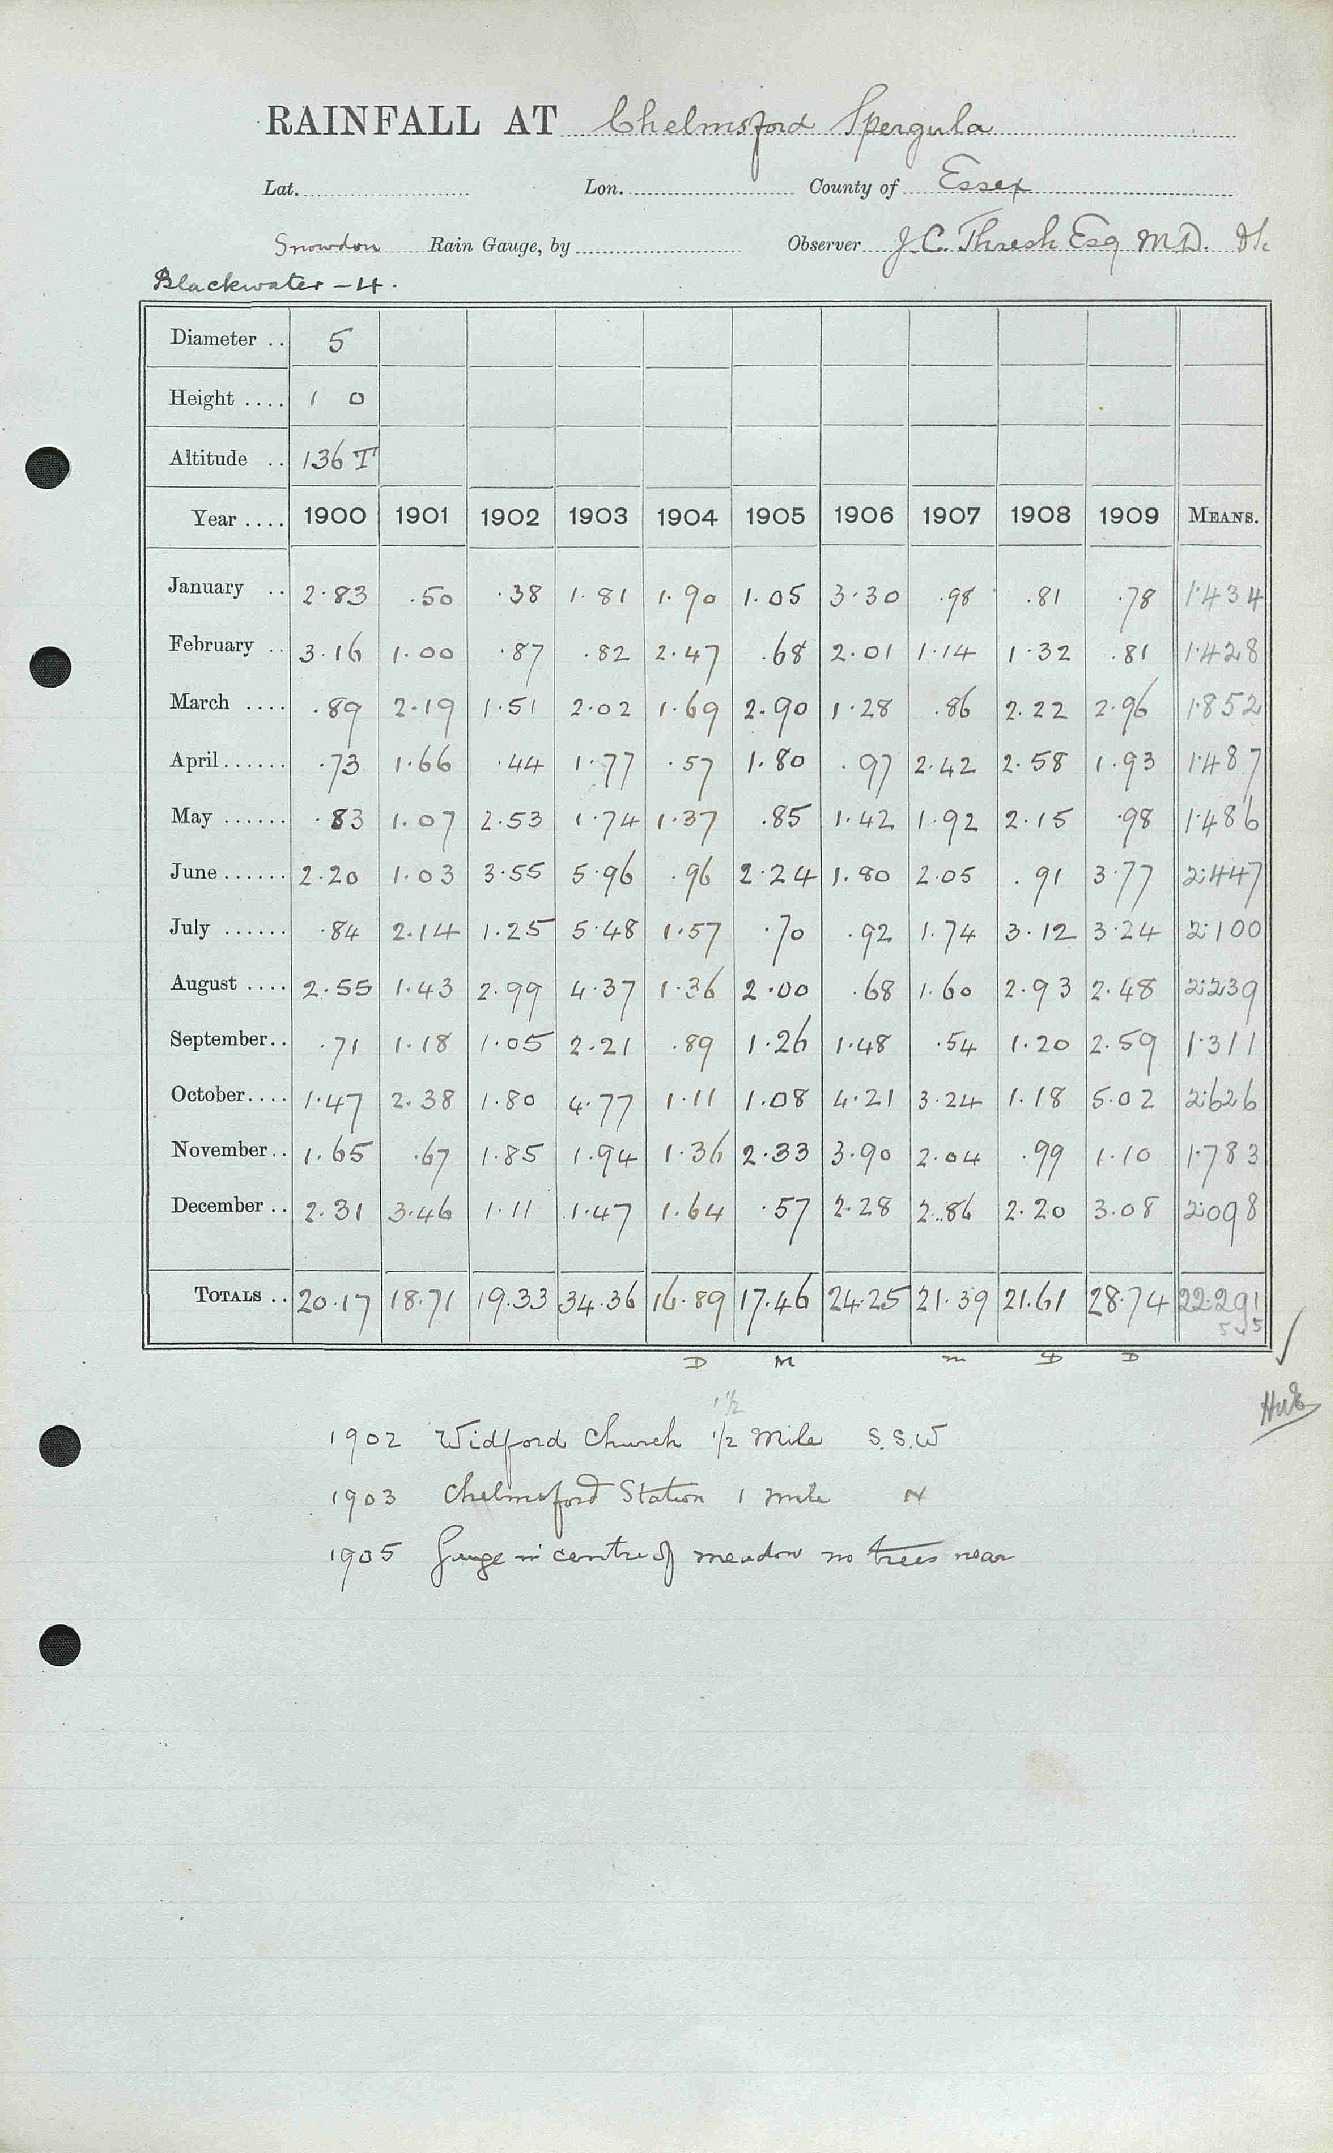 RAINFALL AT Chelmsford Spergula
Lat. Lon. County of Essex
Snowdon Rain Gauge, by Observer J.C. Thresh Esq M.D.
Blackwater - 4.
Diameter .. 5
Height .... 1 0
Altitude .. 136 T
Year .... 1900 1901 1902 1903 1904 1905 1906 1907 1908 1909 MEANS.
January .. 2.83 .50 .38 1.81 1.90 1.05 3.30 .98 .81 .78 1.434
February .. 3.16 1.00 .87 .82 2.47 .68 2.01 1.14 1.32 .81 1.428
March .... .89 2.19 1.51 2.02 1.69 2.90 1.28 .86 2.22 2.96 1.852
April...... .73 1.66 .44 1.77 .57 1.80 .97 2.42 2.58 1.93 1.487
May ...... .83 1.07 2.53 1.74 1.37 .85 1.42 1.92 2.15 .98 1.486
June ...... 2.20 1.03 3.55 5.96 .96 2.24 1.80 2.05 .91 3.77 2.447
July ...... .84 2.14 1.25 5.48 1.57 .70 .92 1.74 3.12 3.24 2.100
August .... 2.55 1.43 2.99 4.37 1.36 2.00 .68 1.60 2.93 2.48 2.239
September.. .71 1.18 1.05 2.21 .89 1.26 1.48 .54 1.20 2.59 1.311
October.... 1.47 2.38 1.80 4.77 1.11 1.08 4.21 3.24 1.18 5.02 2.626
November.. 1.65 .67 1.85 1.94 1.36 2.33 3.90 2.04 .99 1.10 1.783
December .. 2.31 3.46 1.11 1.47 1.64 .57 2.28 2.86 2.20 3.08 2.098
TOTALS .. 20.17 18.71 19.33 34.36 16.89 17.46 24.25 21.39 21.61 28.74 22.291
D M m D D
1 1/2
1902 Widford Church 1/2 Mile S.S.W
1903 Chelmsford Station 1 mile N
1905 Gauge in centre of meadow no trees near